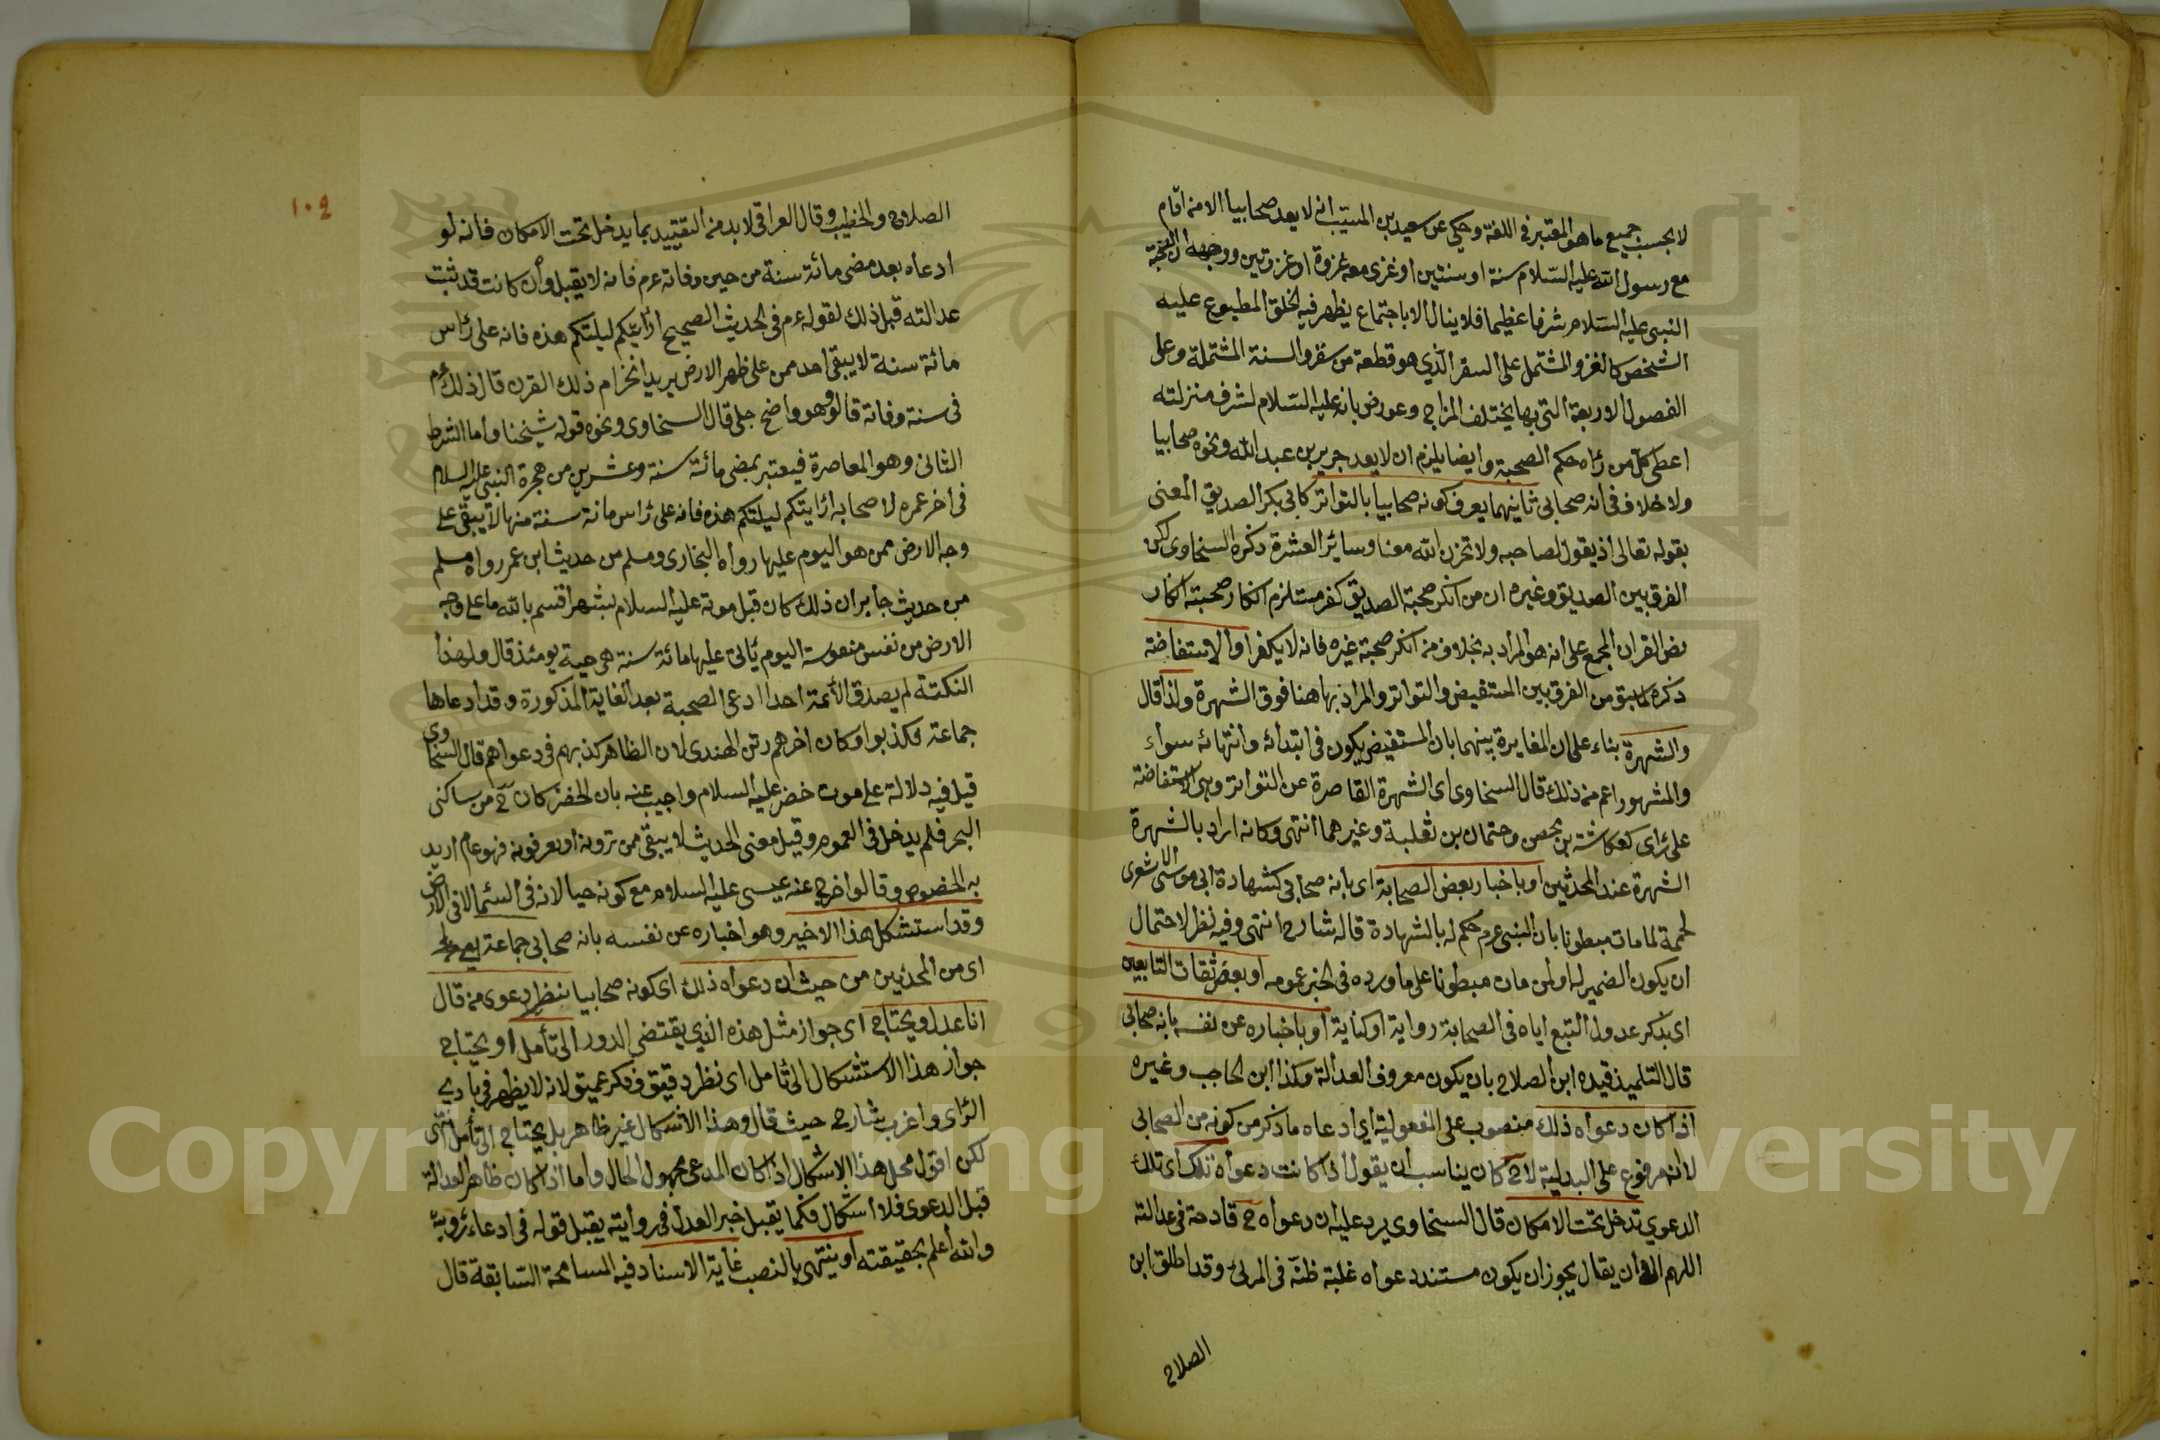 لا بحسب جميع ما هو المعتبر في اللغة وحكي عن سعيد بن المسيّب انه لا يعد صحابيا الا من اقام
مع رسول الله عليه السّلام سنة او سنتين او غزى معه غزوة او غزوتين ووجهه ان لصحبة
النبى عليه السّلام شرفا عظيما فلا ينال الا باجتماع يظهر فيه الخلق المطبوع عليه
الشخص كالغزو المشتمل على السفر الّذي هو قطعة من سقر والسنة المشتملة وعلى
الفصول الاربعة التى بها يختلف المزاج وعورض بانه عليه السّلام لشرف منزلته
اعطى كل من رآه حكم الصحبة وايضا يلزم ان لا يعد جرير بن عبد الله ونحوه صحابيا
ولا خلاف في انه صحابي ثانيهما يعرف كونه صحابيا بالتواتر كابى بكر الصديق المعنى
بقوله تعالى اذ يقول لصاحبه ولا تحزن الله معنا وسائر العشرة ذكره السخاوى لكن
الفرق بين الصديق وغيره ان من انكر صحبة الصديق كفر مستلزم انكار صحبته انكار
نص القران المجمع على انه هو المراد به بخلاف من انكر صحبة غيره فانه لا يكفر او الاستفاضة
ذكره لما سبق من الفرق بين المستفيض والتواتر والمراد بها هنا فوق الشهرة ولذا قال
والشهرة بناء على ان المغايرة بينهما بان المستفيض يكون في ابتدائه وانتهائه سواء
والمشهور اعم من ذلك قال السخاوى اى الشهرة القاصرة عن التواتر وهى الاستفاضة
على رأى كعكاشة بن محصن وحتمان بن ثعلبة وغيرهما انتهى وكانه اراد بالشهرة
الشهرة عند المحدثين او باخبار بعض الصحابة اى بانه صحابى كشهادة ابى موسى الاشعرى
لحممة لما مات مبطونا بان النبى عم حكم له بالشهادة قاله شارح انتهى وفيه نظر لاحتمال
ان يكون الضمير له او لمن مات مبطونا على ما ورده في الخبر عمومه او بعض ثقات التابعين
اى بذكر عدول التبع اياه في الصحابة رواية او كناية او باخباره عن نفسه بانه صحابى
قال التلميذ قيده ابن الصلاح بان يكون معروف العدالة وكذا ابن الحاجب وغيره
اذا كان دعواه ذلك منصوب على المفعولية اي ادعاه ما ذكر من كونه من الصحابى
لا انه مرفوع على البدلية لا ح كان يناسب ان يقول اذا كانت دعواه تلك اى تلك
الدعوي تدخل تحت الامكان قال السخاوى يرد عليه ان دعواه ح قادحة في عدالته
اللهم الا ان يقال يجوز ان يكون مستند دعواه غلبة ظنّه في المرئى وقد اطلق ابن
الصلاح
١٠٤
الصلاح والخطيب وقال العراقى لا بد من التقييد بما يدخل تحت الامكان فانه لو
ادعاه بعد مضى مائة سنة من حين وفاته عم فانه لا يقبل وان كانت قد ثبت
عدالته قبل ذلك لقوله عم في الحديث الصحيح ارأيتكم ليلتكم هذه فانه على رأس
مائة سنة لا يبقى احد ممن على ظهر الارض يريد انخرام ذلك القرن قال ذلك عم
فى سنة وفاته قالو وهو واضح جلى قال السخاوى ونحوه قوله شيخنا وأما الشرط
الثانى وهو المعاصرة فيعتبر بمضى مائة سنة وعشرين من هجرة النبى عليه السلام
فى اخر عمره لاصحابه ارأيتكم ليلتكم هذه فانه على رأس مائة سنة منها لا يبقى على
وجه الارض ممن هو اليوم عليها رواه البخارى ومسلم من حديث ابن عمر رواه مسلم
من حديث جابر ان ذلك كان قبل موته عليه السلام بشهر اقسم بالله ما على وجه
الارض من نفس منفوسة اليوم يأتى عليها مائة سنة هى حية يومئذ قال ولهذا
النكتة لم يصدق الأئمة احدا ادعى الصحبة بعد الغاية المذكورة وقد ادعاها
جماعة فكذبوا وكان اخرهم رتن الهندى لان الظاهر كذبهم فى دعواهم قال السخاوى
قيل فيه دلالة على موت خضر عليه السلام واجيب عنه بان الخضر كان ح من ساكنى
البحر فلم يدخل فى العموم وقيل معنى الحديث لا يبقى ممن ترونه او تعرفونه فهو عام اريد
به الخصوص وقالوا خرج عنه عيسى عليه السلام مع كونه حيا لانه فى السّما لا فى الارض
وقد استشكل هذا الاخير وهو اخباره عن نفسه بانه صحابى جماعة
اى من المحدثين من حيث ان دعواه ذلك اى كونه صحابيا ينظر دعوى من قال
انا عدل ويحتاج اى جواز مثل هذه الذي يقتضى الدور الى تأمل او يحتاج
جواز هذا الاستشكال الى تامل اى نظر دقيق وفكر عميق لانه لا يظهر فى بادي
الرّاى واغرب شارح حيث قال وهذا الاشكال غير ظاهر بل يحتاج الى تأمل انتهى
لكن اقول محل هذا الاشكال اذا كان المدعى مجهول الحال واما اذا كان ظاهر العدالة
قبل الدعوى فلا اشكال فكما يقبل خبر العدل فى روايته يقبل قوله فى ادعاء رؤيته
والله أعلم بحقيقته او ينتهى بالنصب غاية الاسناد فيه المسامحة السّابقة قال
Copyright © King Saud University